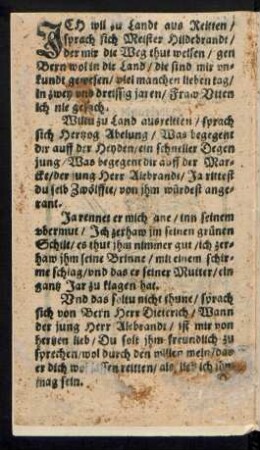 ICH wil zu Landt aus Reitten /
sprach sich Meister Hildebrandt /
der mir die Weg thut weisen / gen
Bern wol in die Land / die sind mir vn-
kundt gewesen / viel manchen lieben tag /
in zwey vnd dreissig jaren / Fraw Vtten
ich nie gesach.
Wiltu zu Land ausreitten / sprach
sich Hertzog Abelung / Was begegent
dir auff der Heyden / ein schneller Degen
jung / Was begegent dir auff der Mar-
cke / der jung Herr Alebrandt / Ja rittest
du selb Zwölffte / von jhm würdest ange-
rant.
Ja rennet er mich ane / inn seinem
vbermut / Ich zerhaw jm seinen grünen
Schilt / es thut jhm nimmer gut / ich zer-
haw jhm seine Brinne / mit einem schir-
me schlag / vnd das er seiner Mutter / ein
gantz Jar zu klagen hat.
Vnd das soltu nicht thune / sprach
sich von Bern Herr Dieterich / Wann
der jung Herr Alebrandt / ist mir von
hertzen lieb / Du solt jhm freundlich zu
sprechen / wol durch den willen mein / da
er dich wol lassen reitten / als lieb ich jhm
mag sein.